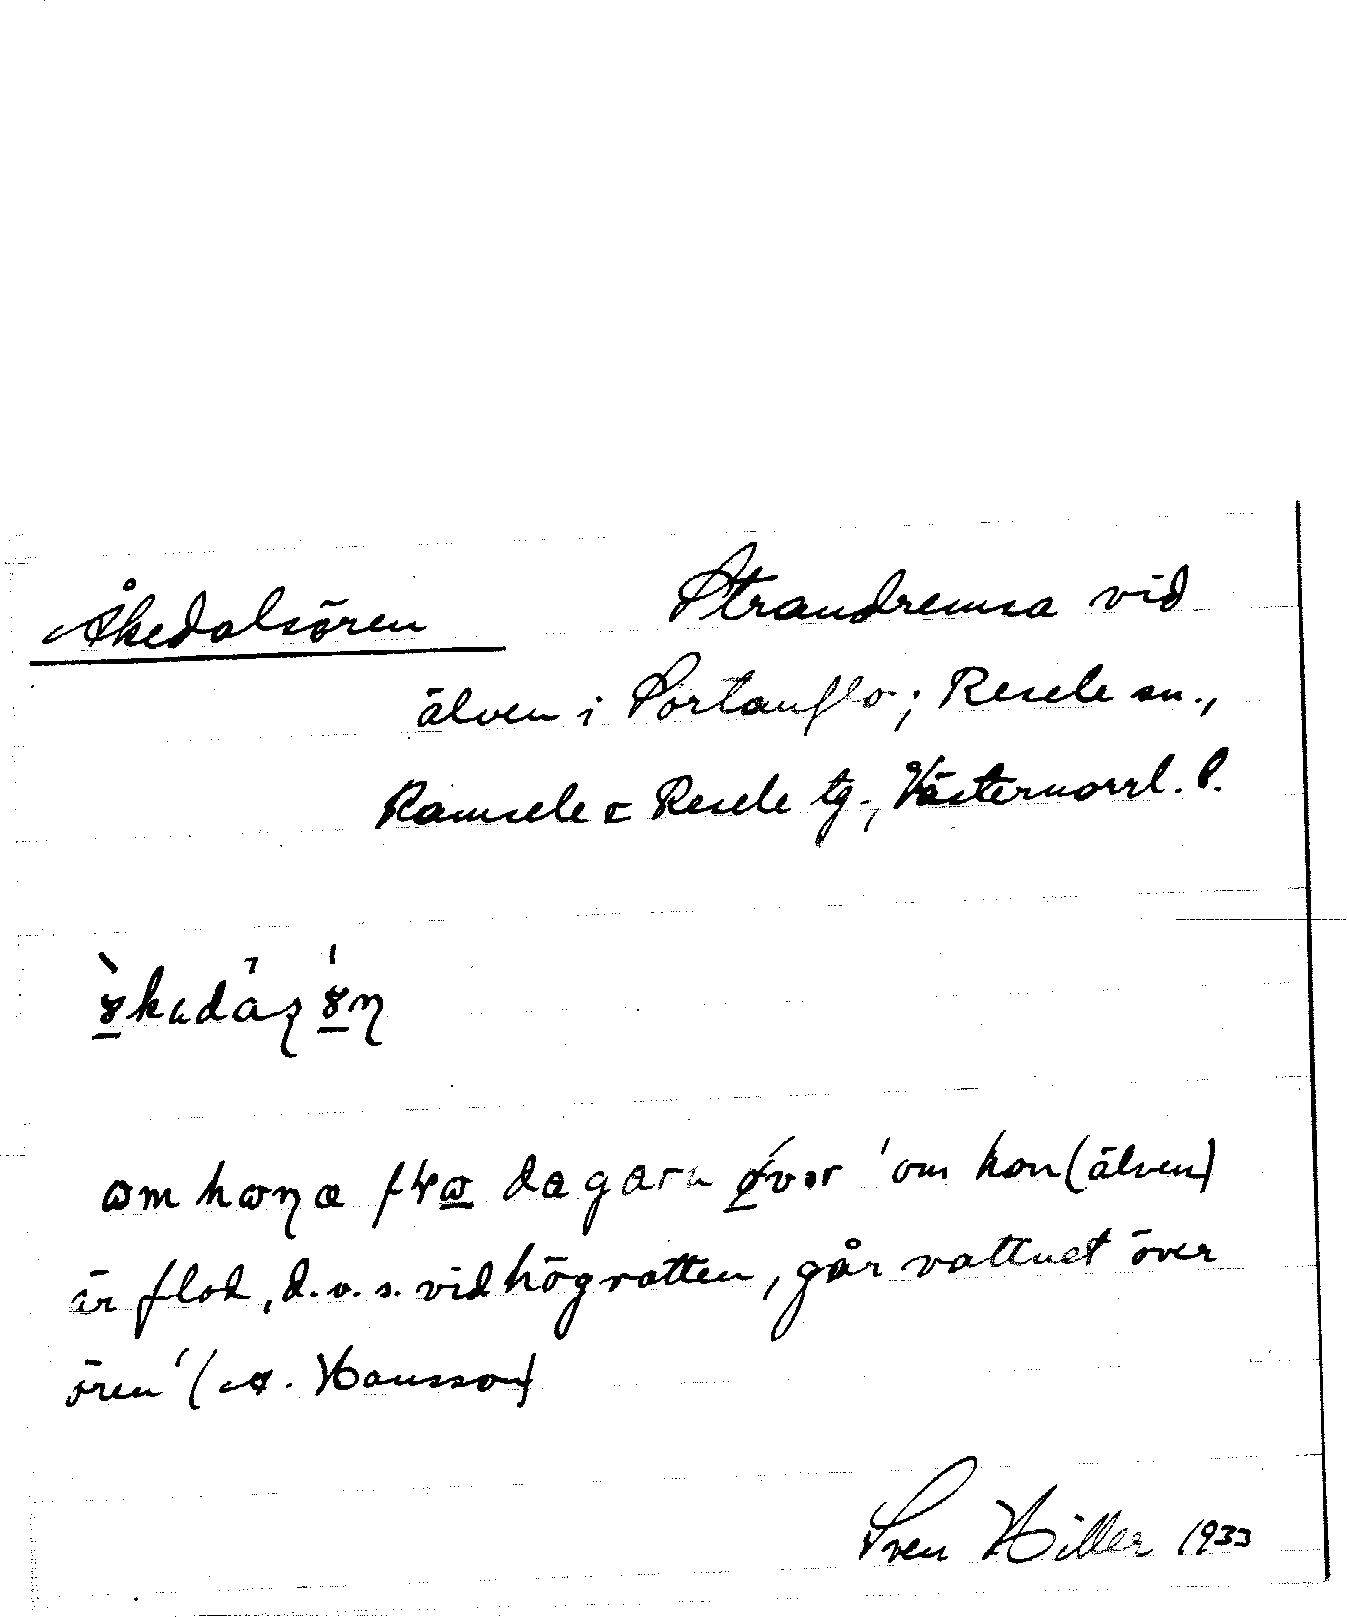 Åkedalsören Strandremsa vid
älven i Portanflo; Resele sn.,
Ramsele o Resele tg., Västernorrl. l.
dagarn
'om hon (älven)
är flod, d.v.s. vid högvatten, går vattnet över
ören' (A. Hansson)
Sven Hiller 1933